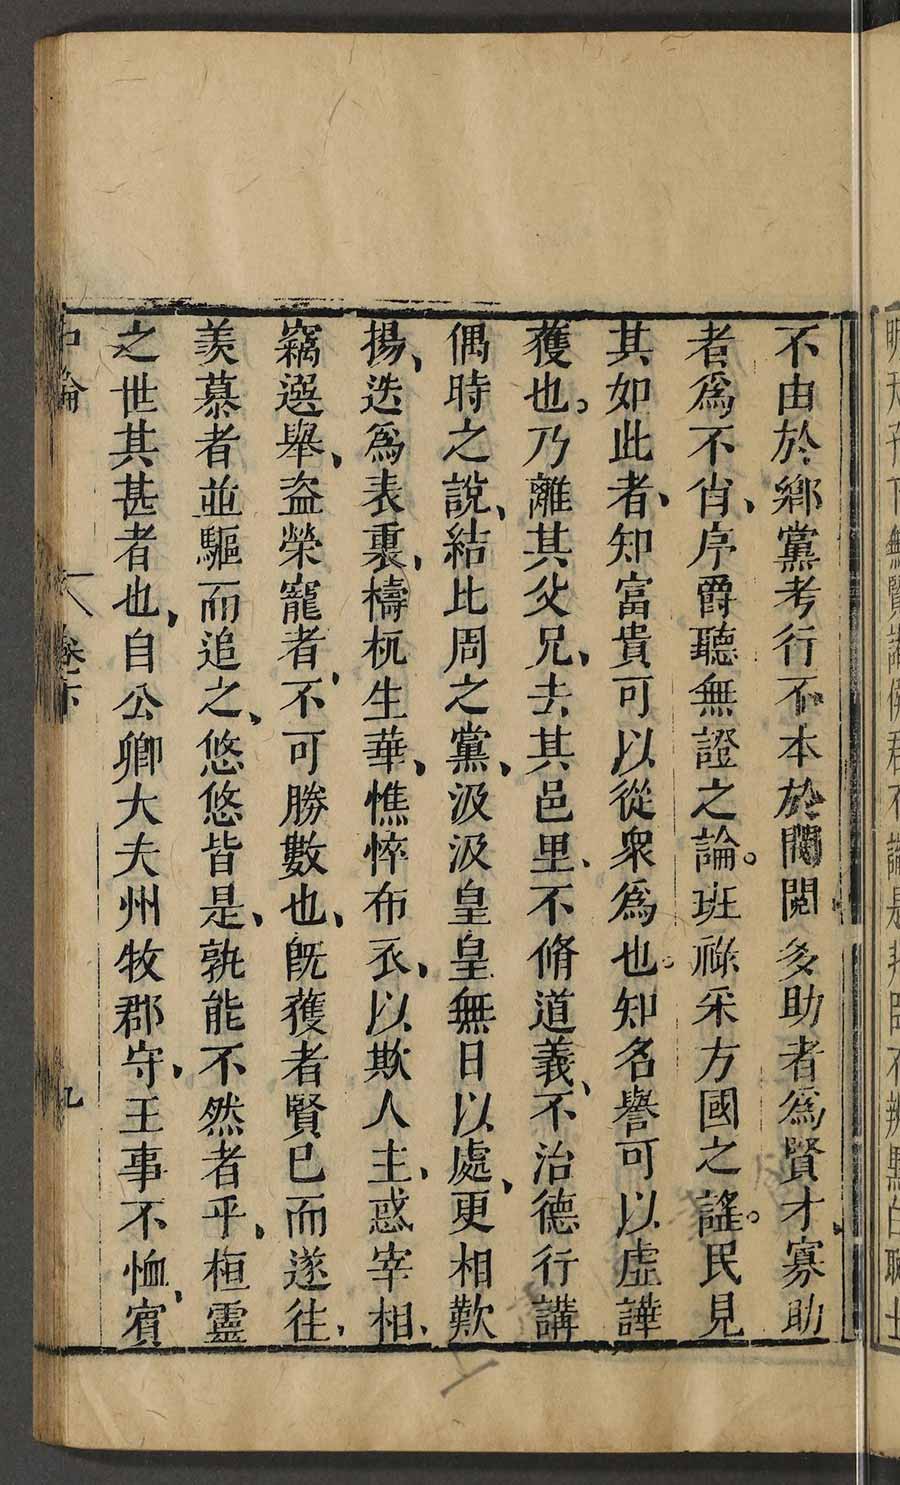 不由於鄉黨考行不本於閥閱多助者爲賢才、寡助
者爲不肖、序爵聽無證之論。班祿采方國之謠。民見
其如此者、知富貴可以從衆爲也。知名譽可以虛譁
獲也。乃離其父兄、去其邑里、不脩道義、不治德行講
偶時之說、結比周之黨、汲汲皇皇無日以處、更相歎
揚、迭爲表裏、檮杌生華、憔悴布衣、以欺人主、惑宰相、
竊選舉、盜榮寵者、不可勝數也、既獲者賢已而遂往、
羨慕者並驅而追之、悠悠皆是、孰能不然者乎、桓靈
之世其甚者也、自公卿大夫州牧郡守、王事不恤、賓
中論
卷下
九